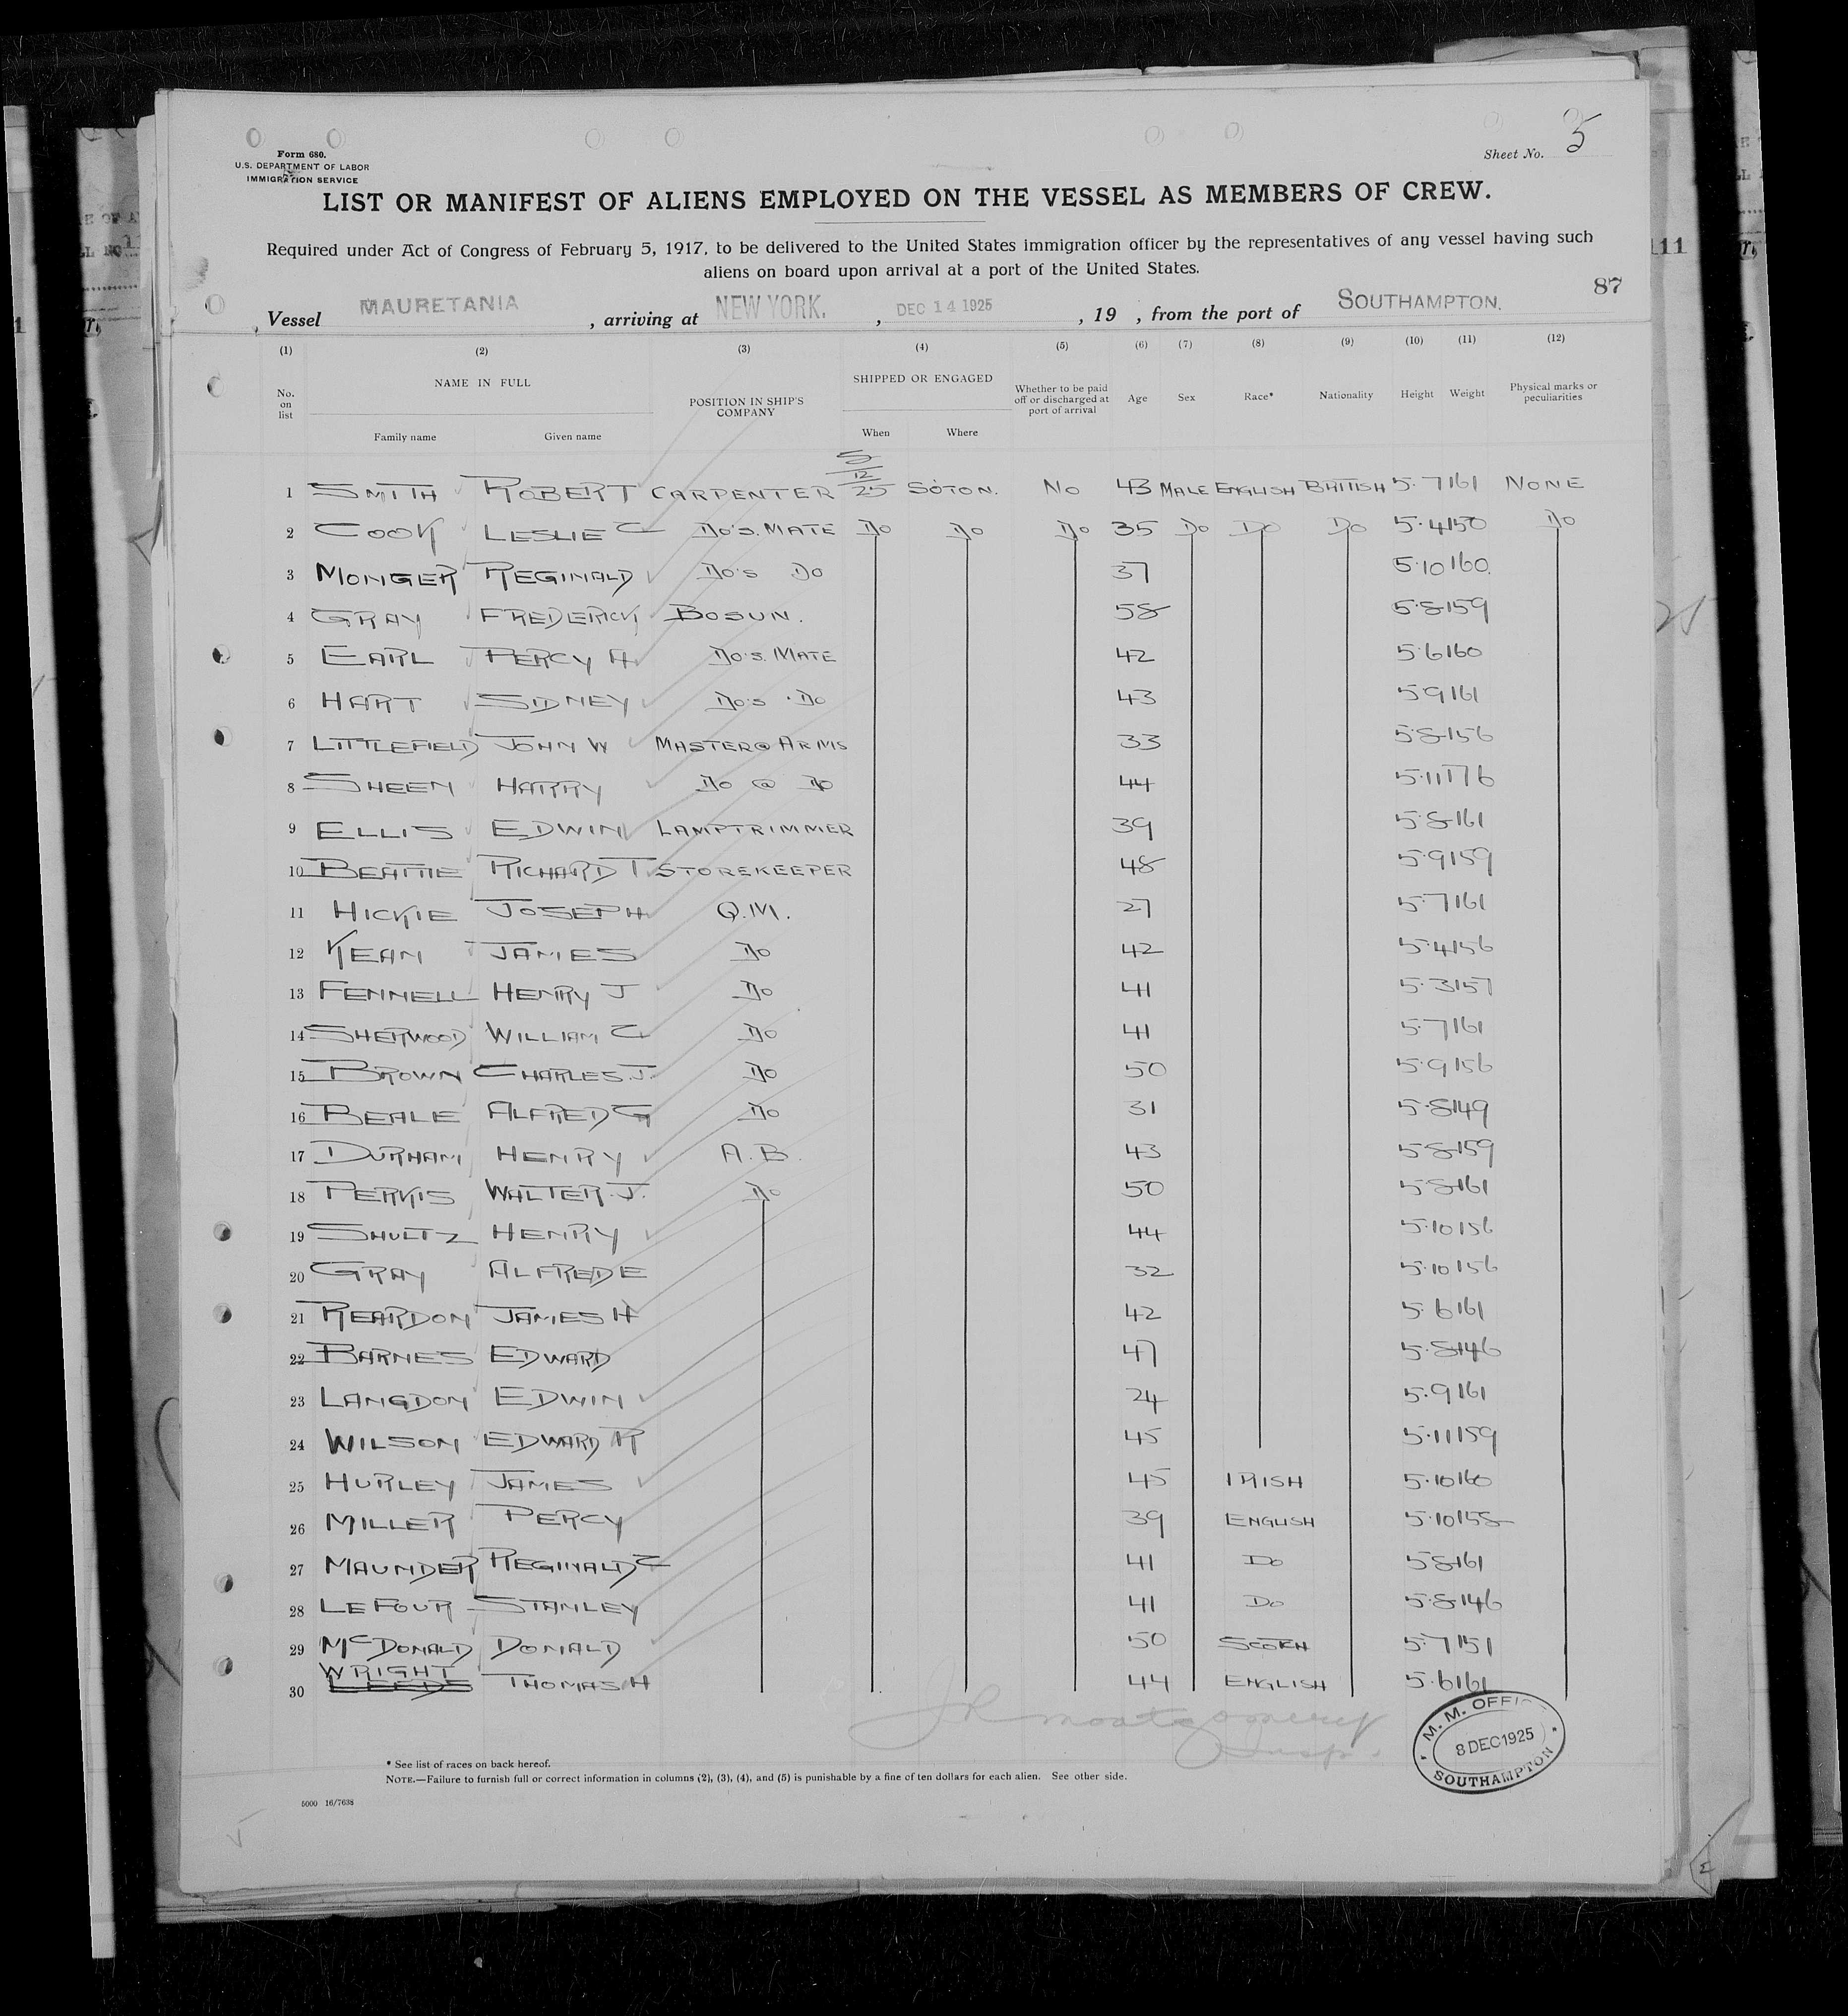 Form 680.
U.S. DEPARTMENT OF LABOR
IMMIGRATION SERVICE
Sheet No. 5
LIST OR MANIFEST OF ALIENS EMPLOYED ON THE VESSEL AS MEMBERS OF CREW.
Required under Act of Congress of February 5, 1917, to be delivered to the United States immigration officer by the representatives of any vessel having such
aliens on board upon arrival at a port of the United States.
87
Vessel MAURETANIA, arriving at NEW YORK., DEC 14 1925, 19 , from the port of SOUTHAMPTON.
(1) (2) (3) (4) (5) (6) (7) (8) (9) (10) (11) (12)
No. on list NAME IN FULL Family name Given name POSITION IN SHIP'S COMPANY SHIPPED OR ENGAGED When Where Whether to be paid off or discharged at port of arrival Age Sex Race* Nationality Height Weight Physical marks or peculiarities
1 SMITH ROBERT CARPENTER 5/12/25 SOTON. NO 43 MALE ENGLISH BRITISH 5.7 161 NONE
2 COOK LESLIE C DO'S. MATE DO DO DO 35 DO DO DO 5.4 150 DO
3 MONGER REGINALD DO'S DO 37 5.10 160.
4 GRAY FREDERICK BOSUN. 58 5.8 159
5 EARL PERCY A DO'S. MATE 42 5.6 160
6 HART SIDNEY DO'S DO 43 5.9 161
7 LITTLEFIELD JOHN W MASTER @ ARMS 33 5.8 156
8 SHEEN HARRY DO @ DO 44 5.11 176
9 ELLIS EDWIN LAMPTRIMMER 39 5.8 161
10 BEATTIE RICHARD T. STOREKEEPER 48 5.9 159
11 HICKIE JOSEPH Q.M. 27 5.7 161
12 KEAN JAMES DO 42 5.4 156
13 FENNELL HENRY J DO 41 5.3 157
14 SHERWOOD WILLIAM C DO 41 5.7 161
15 BROWN CHARLES. J. DO 50 5.9 156
16 BEALE ALFRED G DO 31 5.8 149
17 DURHAM HENRY A.B. 43 5.8 159
18 PERKIS WALTER. J. DO 50 5.8 161
19 SHULTZ HENRY 44 5.10 156
20 GRAY ALFRED E 32 5.10 156
21 REARDON JAMES H 42 5.6 161
22 BARNES EDWARD 47 5.8 146
23 LANGDON EDWIN 24 5.9 161
24 WILSON EDWARD R 45 5.11 159
25 HURLEY JAMES 45 IRISH 5.10 160
26 MILLER PERCY 39 ENGLISH 5.10 158
27 MAUNDER REGINALD C 41 DO 5.8 161
28 LEFOUR STANLEY 41 DO 5.8 146
29 McDONALD DONALD 50 SCOTCH 5.7 151
30 WRIGHT LEEDS THOMAS H 44 ENGLISH 5.6 161
Montgomery
Insp.
M. M. OFFIC
8 DEC 1925
SOUTHAMPTON
* See list of races on back hereof.
NOTE.—Failure to furnish full or correct information in columns (2), (3), (4), and (5) is punishable by a fine of ten dollars for each alien. See other side.
5000 16/7638